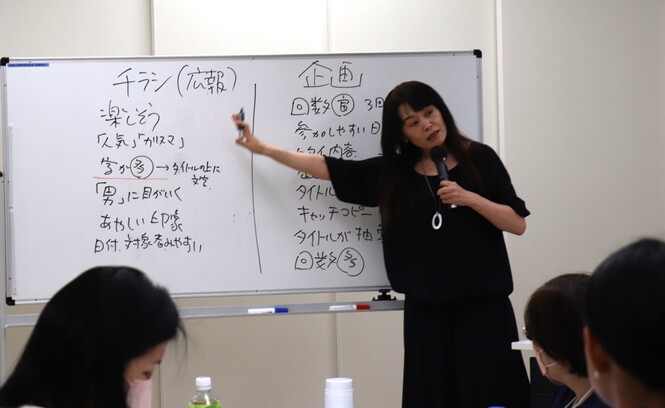 チラシ(広報)
楽しそう
「人気」「カリスマ」
字が多 → タイトルの上に
文字
「男」に目がいく
あやしい印象
日付、対象者みやすい
企画
回数 3回
参加しやすい日
内容
タイトル
キャッチコピー
タイトルが抽
回数多